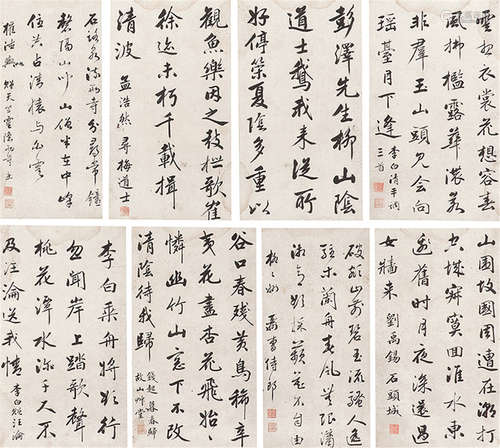 雲想衣裳花想容春
風拂檻露華濃若
非群玉山頭見會向
瑤臺月下逢 李白清平調
三首
彭澤先生柳山陰
道士鵞我來從所
好停策夏陰多重以
觀魚樂因之鼓枻歌崔
徐迹未朽千載揖
清波 孟浩然 尋梅道士
石路泉流兩寺分尋常鐘
磬隔山聞山僧半在中峰
住共占清巒與白雲
權德輿 贈天竺靈隱二寺主
山圍故國週遭在潮打
空城寂寞回淮水東
邊舊時月夜深還過
女牆來 劉禹錫 石頭城
破額山前碧玉流騷人遙
駐木蘭舟春風無限瀟
湘意欲採蘋花不自由
柳柳州 酬曹侍御
谷口春殘黃鳥稀辛
夷花盡杏花飛始
憐幽竹山窗下不改
清陰待我歸 錢起 暮春歸
故山草堂
李白乘舟將欲行
忽聞岸上踏歌聲
桃花潭水深千尺不
及汪淪送我情 李白 贈汪淪